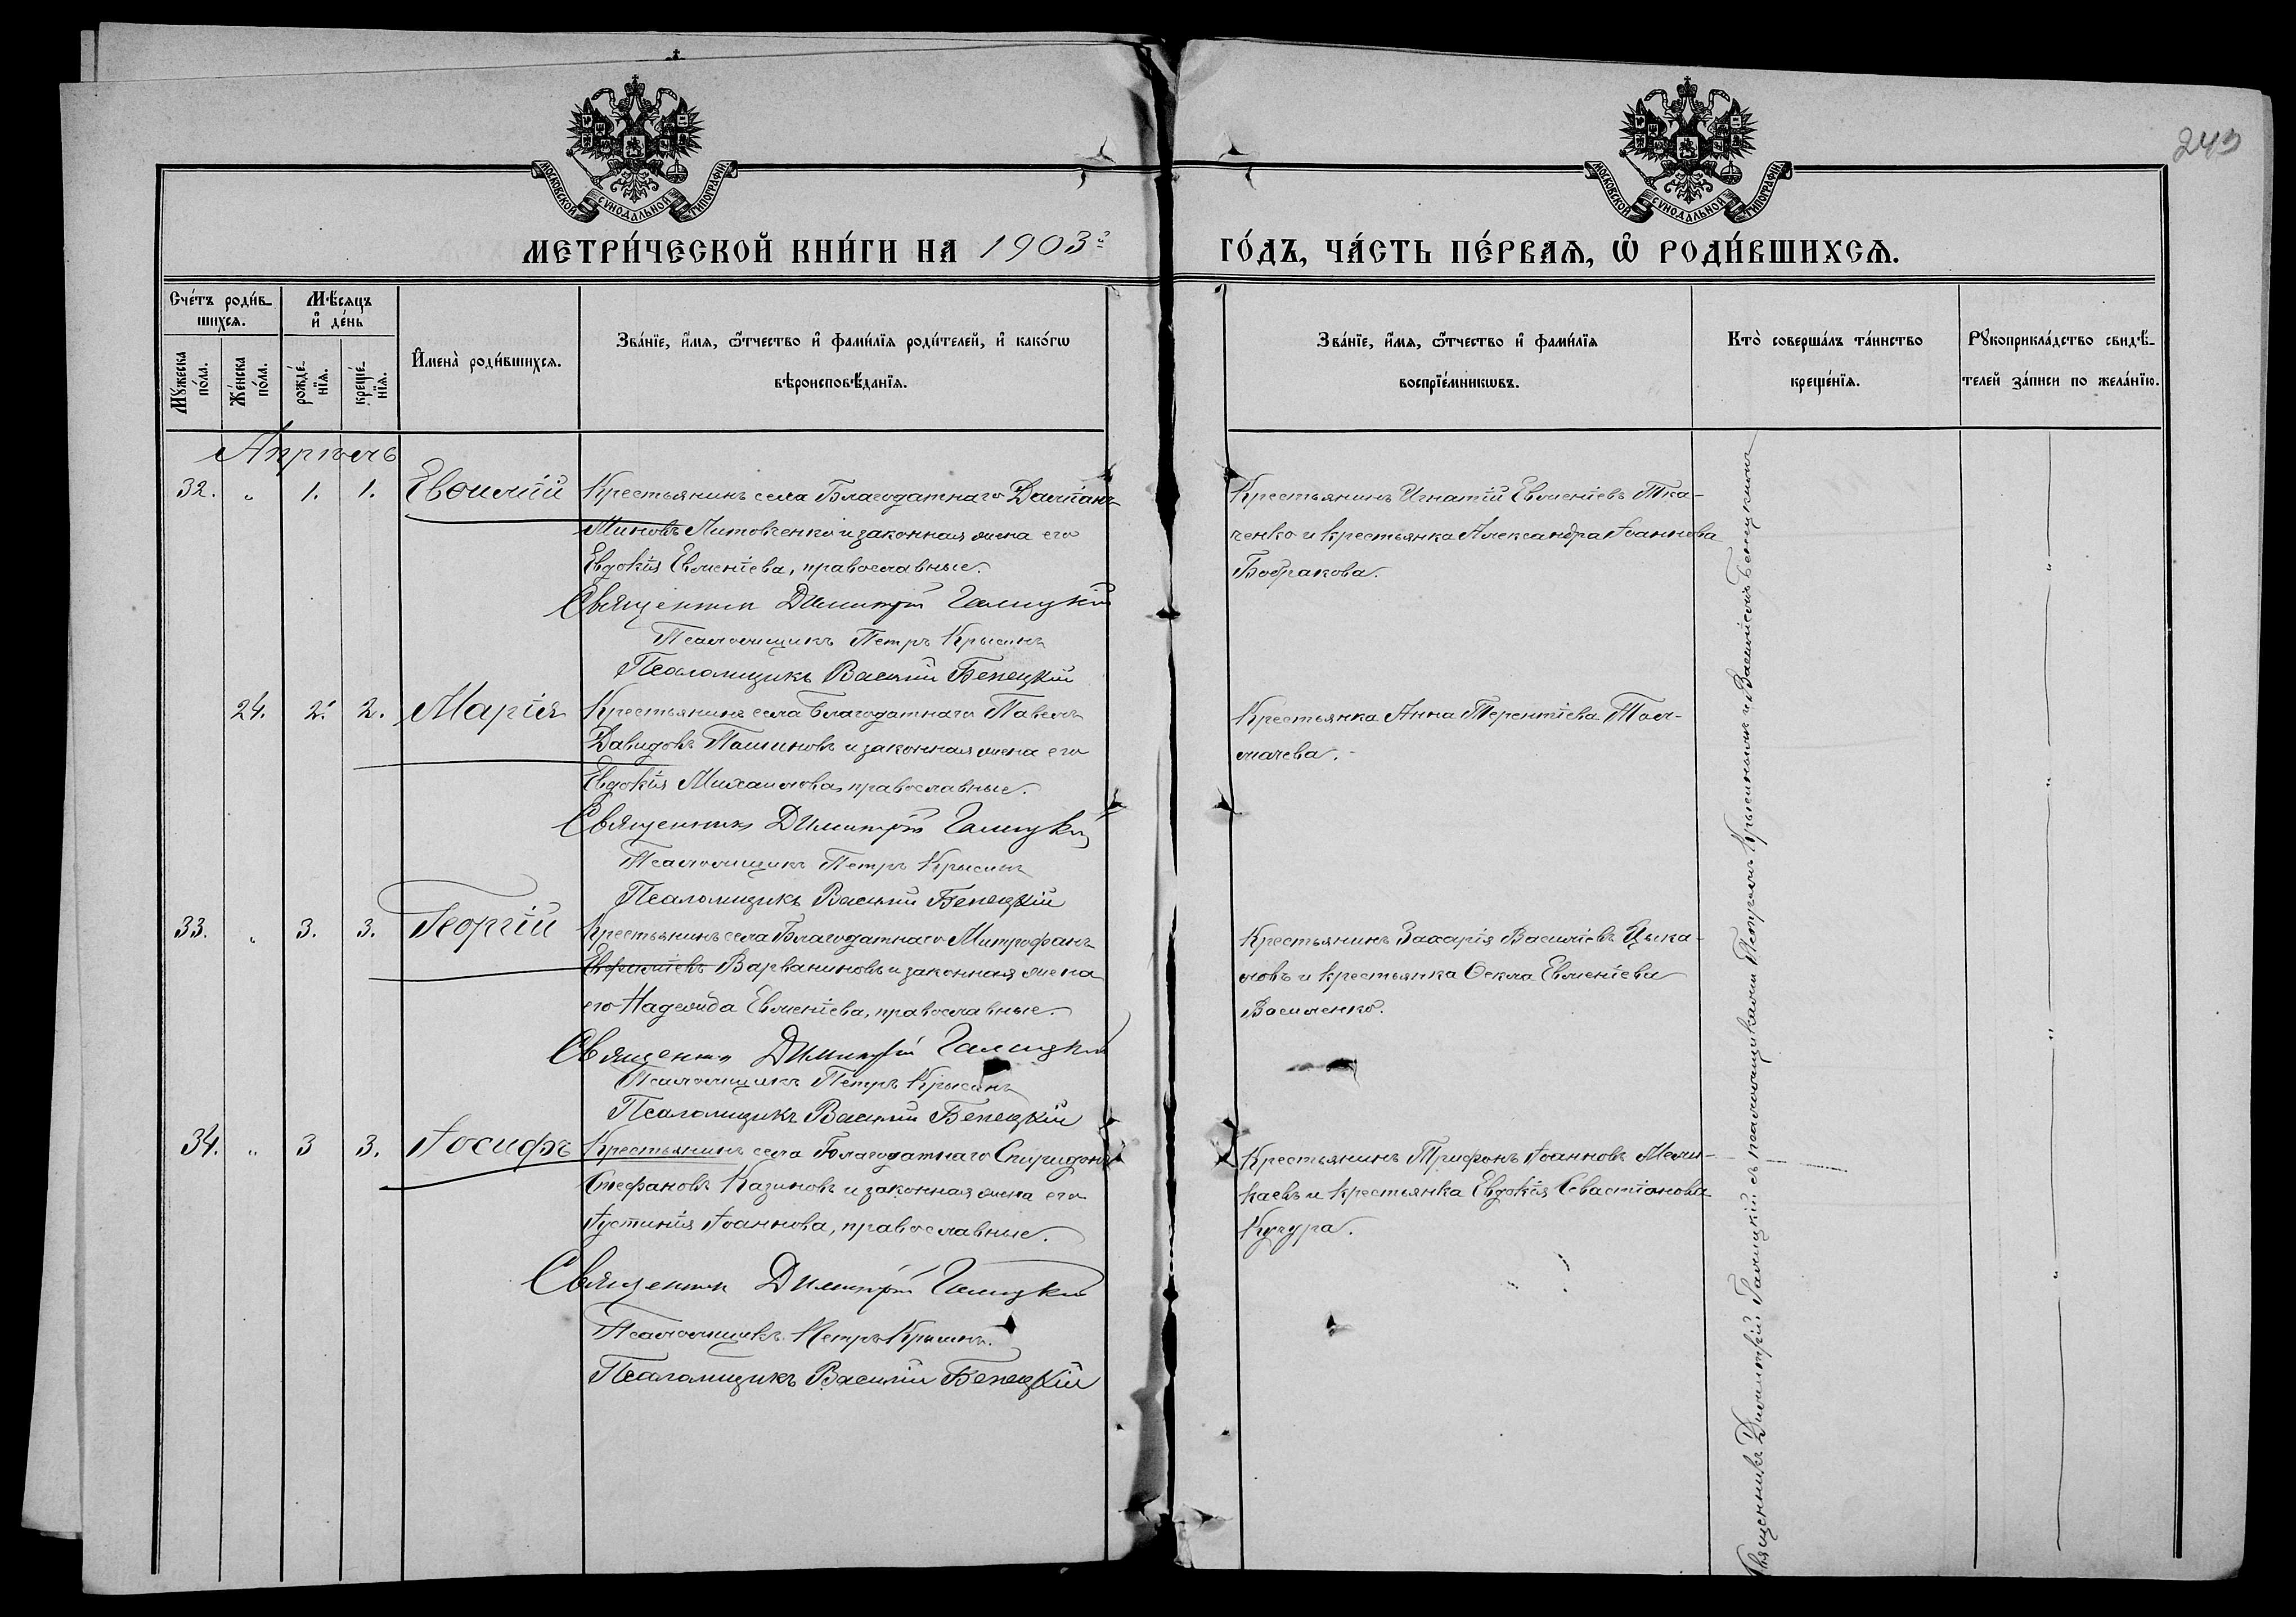 243
МОСКОВСКОЙ СУНОДАЛЬНОЙ ТИПОГРАФІИ
МОСКОВСКОЙ СУНОДАЛЬНОЙ ТИПОГРАФІИ
МЕТРИ́ЧЕСКОЙ КНИ́ГИ НА 1903й ГО́ДЪ, ЧА́СТЬ ПЕ́РВАѦ, Ѡ҆ РОДИ́ВШИХСѦ.
Сче́тъ роди́в-
шихсѧ.
Мꙋ́жеска
по́ла.
Же́нска
по́ла.
Мѣ́сѧцъ
и҆ де́нь
рожде́-
нїѧ.
креще́-
нїѧ.
И҆мена̀ роди́вшихсѧ.
Зва́нїе, и҆́мѧ, ѻ҆́тчество и҆ фами́лїѧ роди́телей, и҆ како́гѡ
вѣроисповѣ́данїѧ.
Зва́нїе, и҆́мѧ, ѻ҆́тчество и҆ фами́лїѧ
воспрїе́мникѡвъ.
Кто̀ соверша́лъ та́инство
креще́нїѧ.
Рꙋкоприкла́дство свидѣ́-
телей за́писи по жела́нїю.
Апрѣль
32. " 1. 1. Евѳимій
Крестьянинъ села Благодатнаго Даміанъ
Миновъ Литовченко и законная жена его
Евдокія Евменіева, православные.
Священник Димитрій Галицкій
Псаломщикъ Петръ Крысинъ
Псаломщикъ Василій Бенецкій
Крестьянинъ Игнатій Евменіевъ Тка-
ченко и крестьянка Александра Іоаннова
Бобракова.
24. 2. 2. Марія
Крестьянинъ села Благодатнаго Павелъ
Давидовъ Пашиновъ и законная жена его
Евдокія Михаилова, православные.
Священникъ Димитрій Галицкій
Псаломщикъ Петръ Крысинъ
Псаломщикъ Василій Бенецкій
Крестьянка Анна Терентіева Тол-
мачева.
33. " 3. 3. Георгій
Крестьянинъ села Благодатнаго Митрофанъ
Варваниновъ и законная жена
его Надежда Евменіева, православные.
Священник Димитрій Галицкій
Псаломщикъ Петръ Крысинъ
Псаломщикъ Василій Бенецкій
Крестьянинъ Захарія Василіевъ Цыка-
ловъ и крестьянка Ѳекла Евменіева
Василенко.
34. " 3 3. Іосифъ
Крестьянинъ села Благодатнаго Спиридонъ
Стефановъ Казиновъ и законная жена его
Іустинія Іоаннова, православные.
Священник Димитрій Галицкій
Псаломщикъ Петръ Крысинъ.
Псаломщикъ Василій Бенецкій
Крестьянинъ Трифонъ Іоанновъ Мели-
каевъ и крестьянка Евдокія Севастіанова
Кучура.
Священникъ Димитрій Галицкій съ псаломщиками Петромъ Крысинымъ и Василіемъ Бенецкимъ